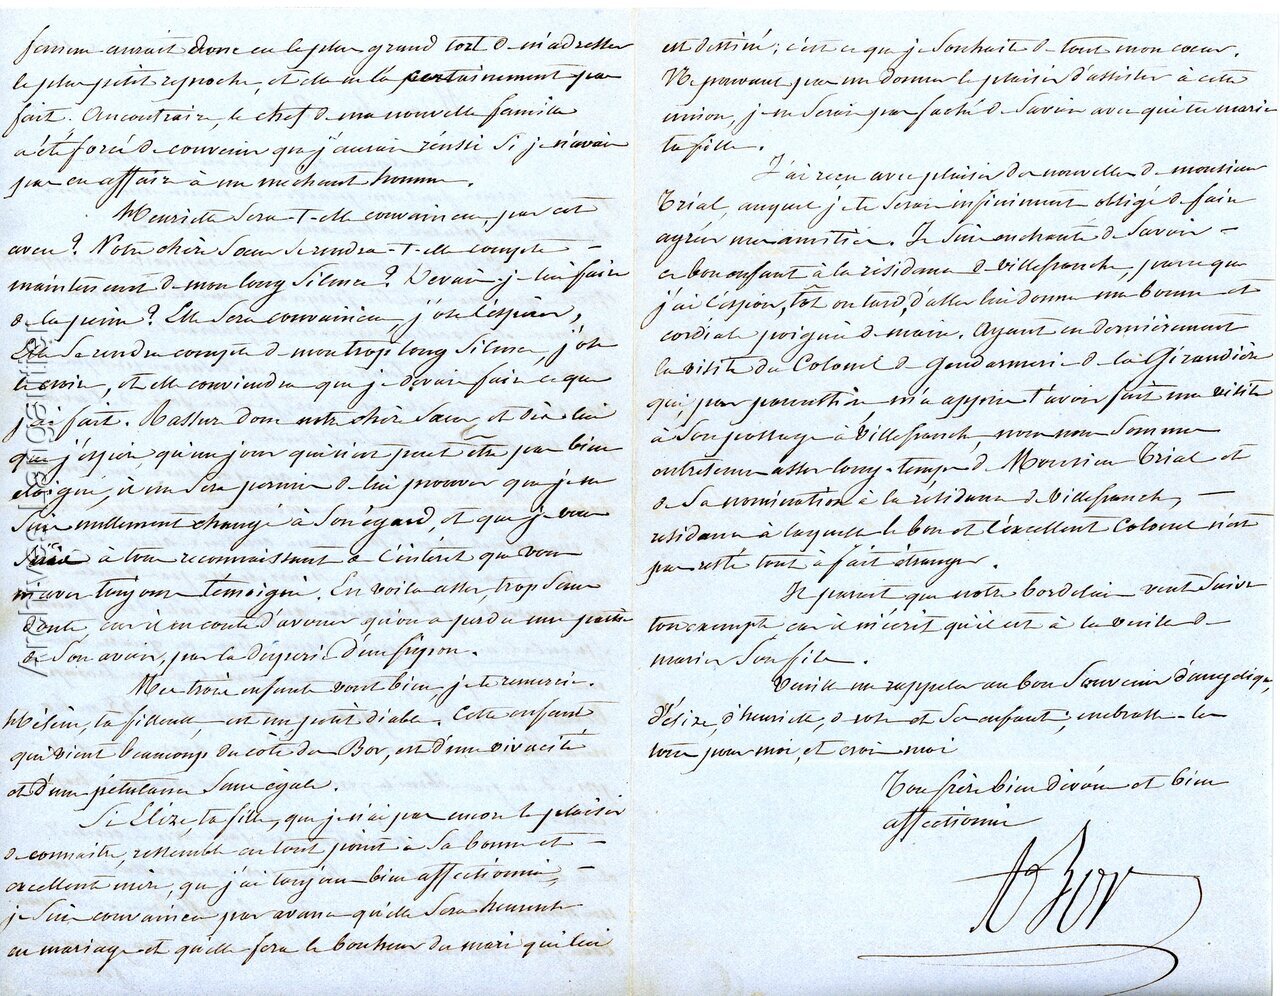 femme aurait donc eu le plus grand tort de m'adresser
le plus petit reproche, et elle ne l'a certainement pas
fait. Au contraire, le chef de ma nouvelle famille
a été forcé de convenir que j'aurais réussi si je n'avais
pas eu affaire à un méchant homme.
Henriette sera-t-elle convaincue, par cet
aveu ? Notre chère Sœur se rendra-t-elle compte
maintenant de mon long Silence ? Devais-je lui faire
de la peine ? Elle sera convaincue, j'ose l'espérer,
Elle se rendra compte de mon trop long Silence, j'ose
le croire, et elle conviendra que je devais faire ce que
j'ai fait. Rassure donc notre chère Sœur et dis lui
que j'espère, qu'un jour qui n'est peut être pas bien
éloigné, il me sera permis de lui prouver que je ne
suis nullement changé à Son égard, et que je vous
suis à tous reconnaissant de l'intérêt que vous
m'avez toujours témoigné. En voilà assez, trop Sans
doute, car il en coute d'avouer qu'on a perdu une partie
de Son avoir, par la duperie d'un fripon.
Mes trois enfants vont bien, je te remercie.
Méline, ta filleule, est un petit diable. Cette enfant
qui vient beaucoup du côté des Bor, est d'une vivacité
et d'une pétulance Sans égale.
Si Elize, ta fille, que je n'ai pas encore le plaisir
de connaître, ressemble en tout point à Sa bonne et
excellente mère, que j'ai toujours bien affectionnée,
je Suis convaincu par avance qu'elle Sera heureuse
en mariage et qu'elle fera le bonheur du mari qui lui
est destiné ; c'est ce que je Souhaite de tout mon cœur.
Ne pouvant pas me donner le plaisir d'assister à cette
union, je ne Serais pas faché de Savoir avec qui tu maries
ta fille.
J'ai reçu avec plaisir des nouvelles de monsieur
Trial, auquel je te Serais infiniment obligé de faire
agréer mes amitiés. Je Suis enchanté de Savoir
ce bon enfant à la résidence de Villefranche, parce que
j'ai l'espoir, tôt ou tard, d'aller lui donner une bonne et
cordiale poignée de main. Ayant eu dernièrement
la visite du Colonel de Gendarmerie de la Girandière
qui, par parenthèse m'a appris t'avoir fait une visite
à Son passage à Villefranche, nous nous Sommes
entretenus assez long-temps de Monsieur Trial et
de Sa nomination à la résidence de Villefranche,
résidence à laquelle le bon et l'excellent Colonel n'est
pas resté tout à fait étranger.
Il parait que notre bordelais veut Suivre
ton exemple car il m'écrit qu'il est à la veille de
marier Son fils.
Veuille me rappeler au bon Souvenir d'angelique,
d'ésirée, d'henriette, de votre et Ses enfants ; embrasse-les
tous pour moi, et crois moi
Ton frère bien dévoué et bien
affectionné
Bor
Archives Lespignalife